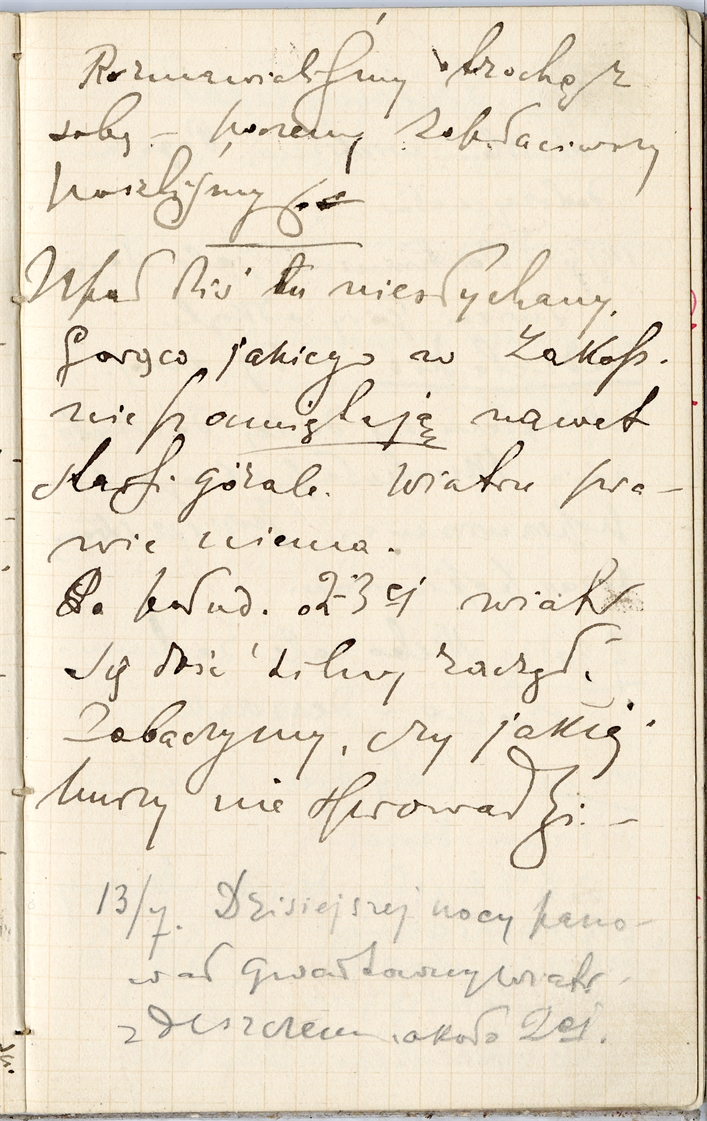 Rozmawialiśmy trochę z
sobą – poczem zobaczywszy
poszliśmy
Upał dziś tu niesłychany.
Gorąco jakiego w Zakop.
nie pamiętają nawet
starsi górale. Wiatru pra-
wie niema.
Po połud. od 2-3ej wiatr
się dość silny zaczął.
Zobaczymy, czy jakiej
burzy nie sprowadzi. –
13/7. Dzisiejszej nocy pano-
wał gwałtowny wiatr
z deszczem. około 2ej.